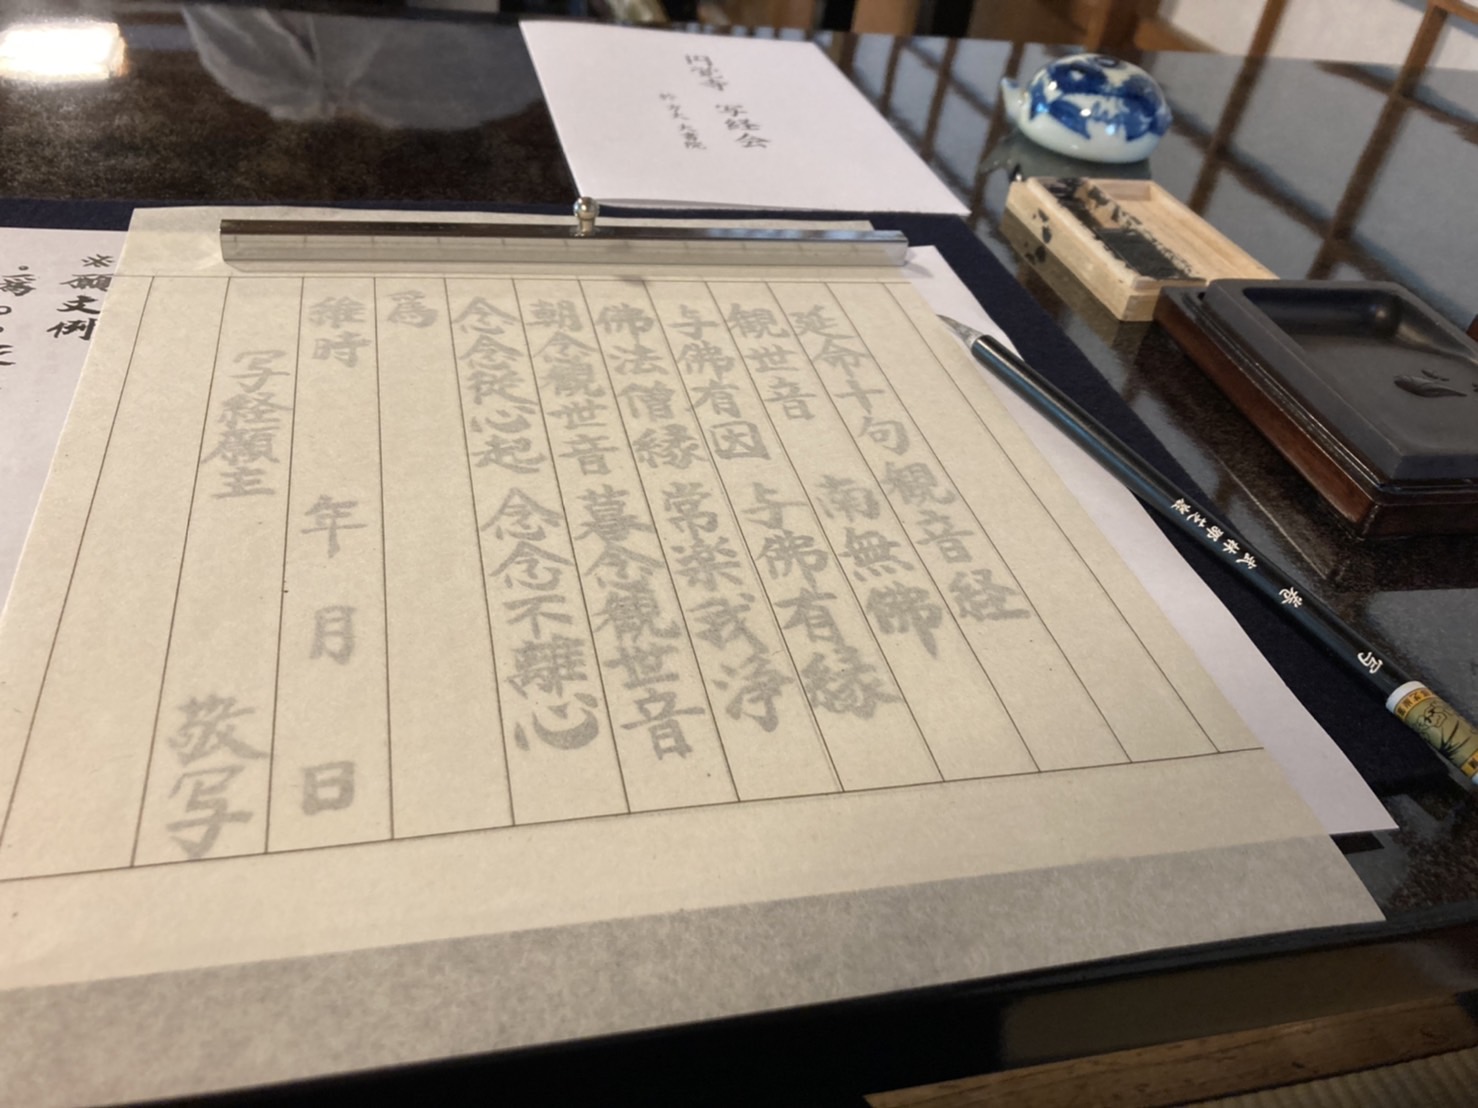 円覚寺 写経会
於 方丈 大書院
延命十句観音経
観世音 南無佛
与佛有因 与佛有縁
佛法僧縁 常楽我浄
朝念観世音 暮念観世音
念念従心起 念念不離心
爲
維時 年 月 日
写経願主 敬写
※願文例